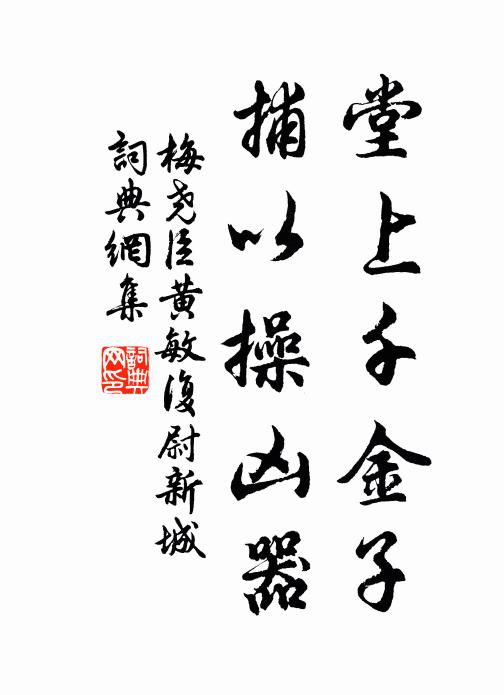 堂上千金子
捕以操凶器
梅尧臣黄敏復尉新城
詞典網集
詞典网印